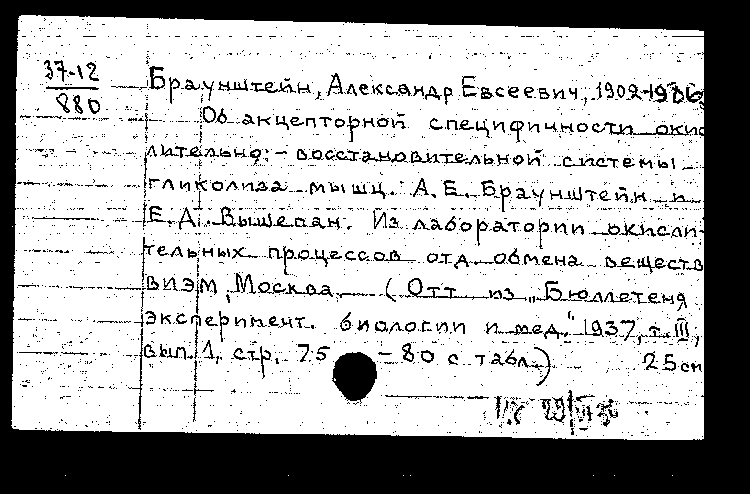 37-12
880
Браунштейн, Александр Евсеевич, 1902-1986
Об акцепторной специфичности окис
лительно:- восстановительной системы
гликолиза мышц. А.Е. Браунштейн и
Е.Д. Вышепан. Из лаборатории окисли-
тельных процессов отд. обмена веществ
ВИЭМ, Москва. (Отт. из „Бюллетеня
эксперимент. биологии и мед." 1937, т. III,
вып. 1, стр. 75 - 80 с табл.) 25 см